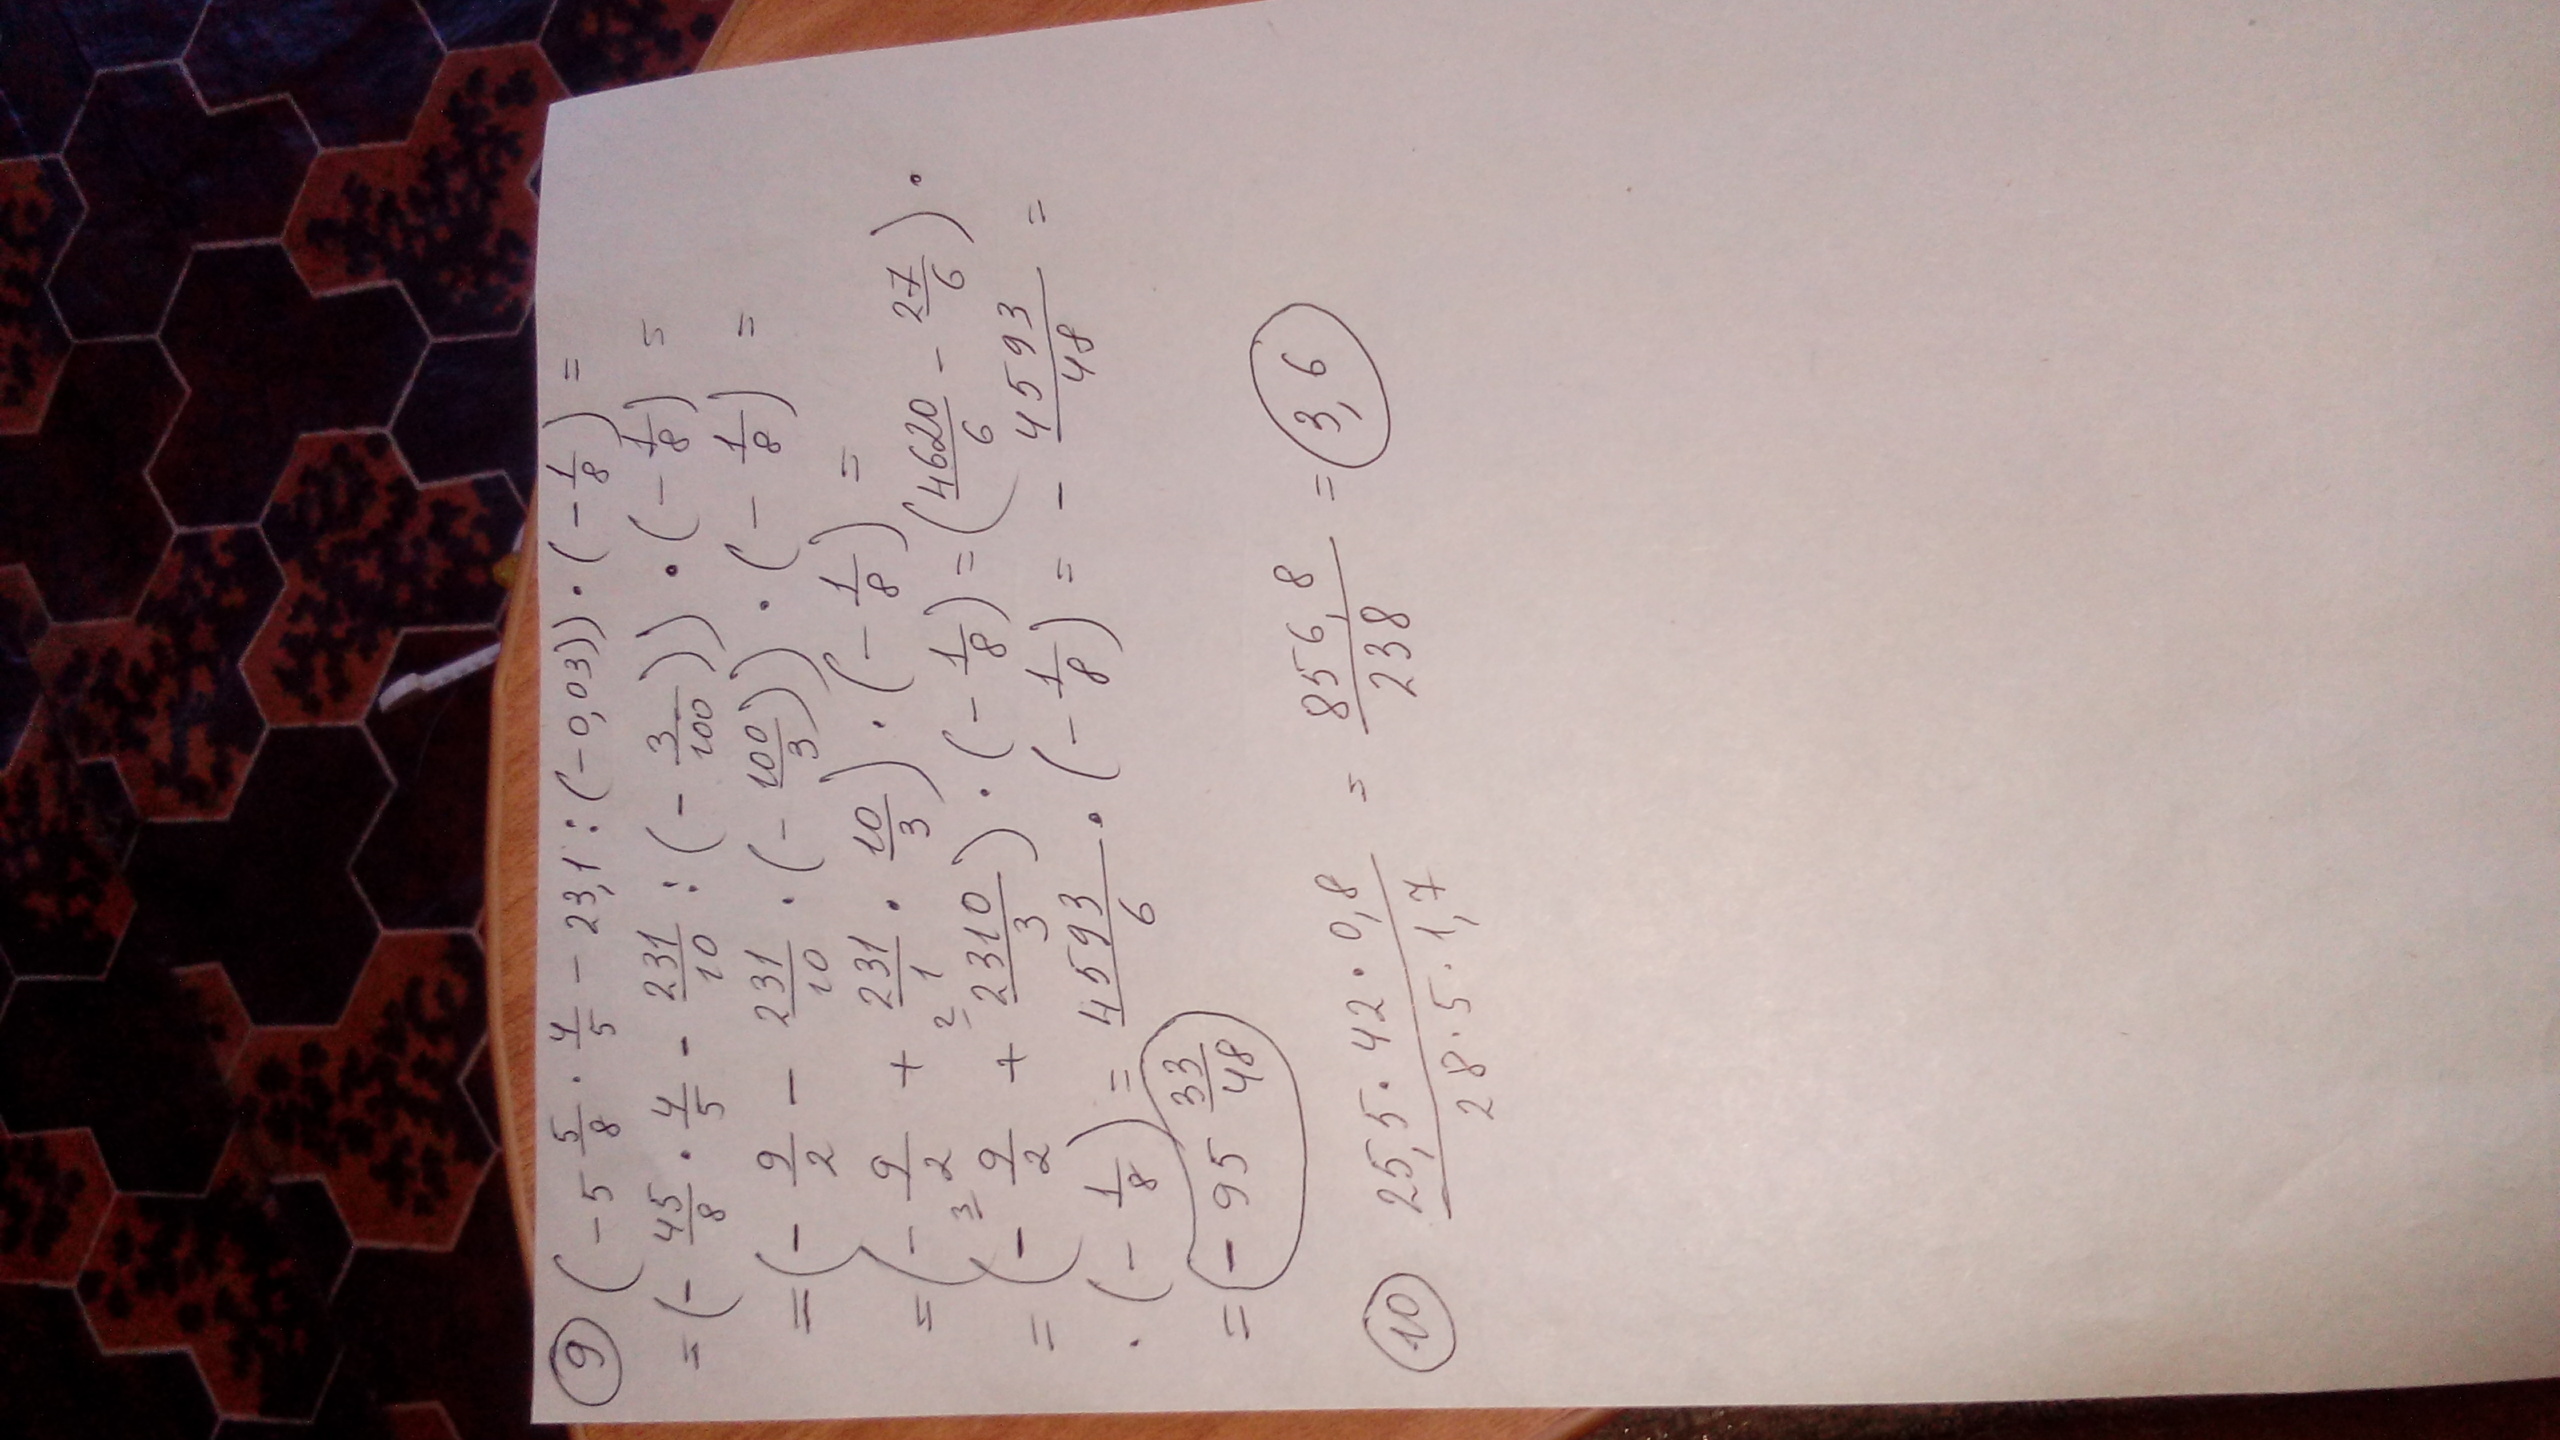 9 (-5 5/8 · 4/5 - 23,1 : (-0,03)) · (-1/8) =
= (-45/8 · 4/5 - 231/10 : (-3/100)) · (-1/8) =
= (-9/2 - 231/10 · (-100/3)) · (-1/8) =
= (-9/2 + 231/1 · 10/3) · (-1/8) =
= (-9/2 + 2310/3) · (-1/8) = (4620/6 - 27/6) ·
· (-1/8) = 4593/6 · (-1/8) = - 4593/48 =
= -95 33/48
10 25,5 · 42 · 0,8/28 · 5 · 1,7 = 856,8/238 = 3,6